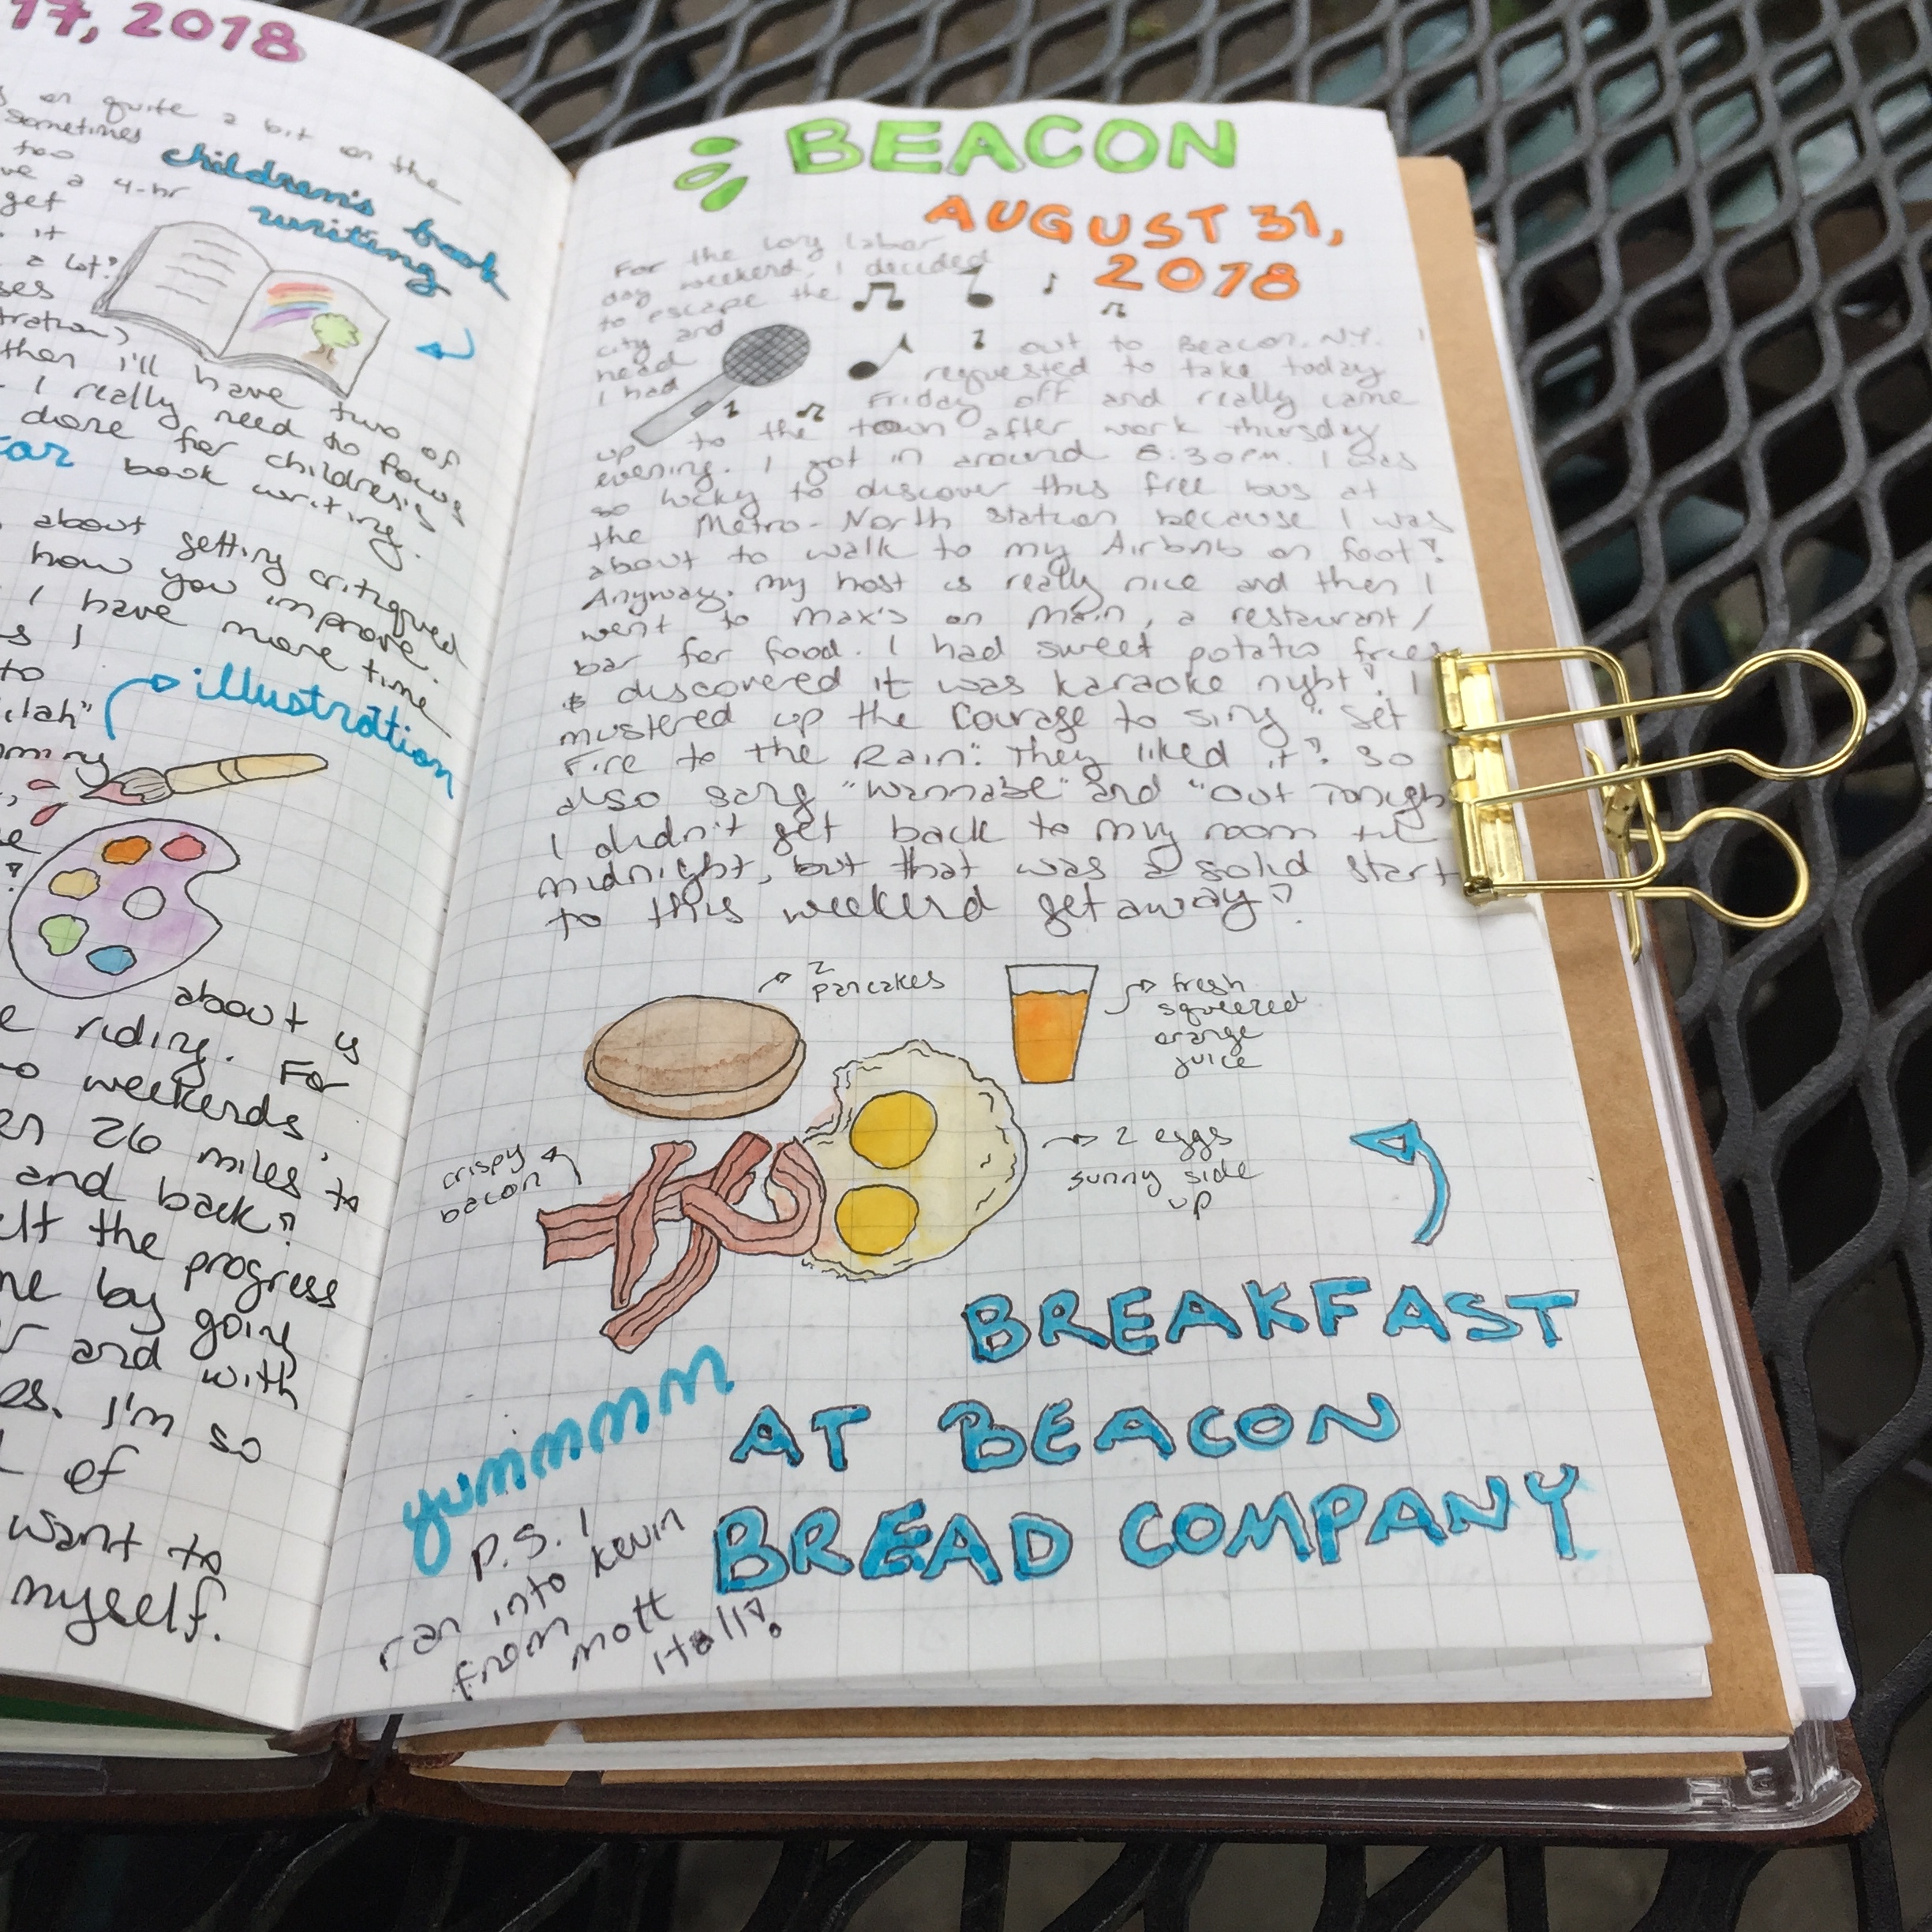 17, 2018
on quite a bit on the
sometimes
too
children's book
writing
a 4-hr
get
it
a lot?
then I'll have two of
I really need to focus
done for children's
book writing.
about getting critiqued
how you improve.
I have more time
I
to
illustration
about is
riding. For
weekends,
26 miles to
and back!
the progress
by going
and with
I'm so
of
want to
myself.
BEACON
AUGUST 31,
2018
For the long labor
day weekend, I decided
to escape the
city and
head out to Beacon, NY. I
I had requested to take today
Friday off and really came
up to the town after work thursday
evening. I got in around 8:30pm. I was
so lucky to discover this free bus at
the Metro-North station because I was
about to walk to my Airbnb on foot!
Anyway, my host is really nice and then I
went to Max's on Main, a restaurant/
bar for food. I had sweet potato fries
& discovered it was karaoke night! I
mustered up the courage to sing "Set
Fire to the Rain". They liked it! So
also sang "Wannabe" and "Out Tonigh
I didn't get back to my room til
midnight, but that was a solid start
to this weekend getaway!
2
pancakes
fresh
squeezed
orange
juice
crispy
bacon
2 eggs
sunny side
up
BREAKFAST
AT BEACON
BREAD COMPANY
yummmm
P.S. I
ran into Kevin
from Mott
Hall!